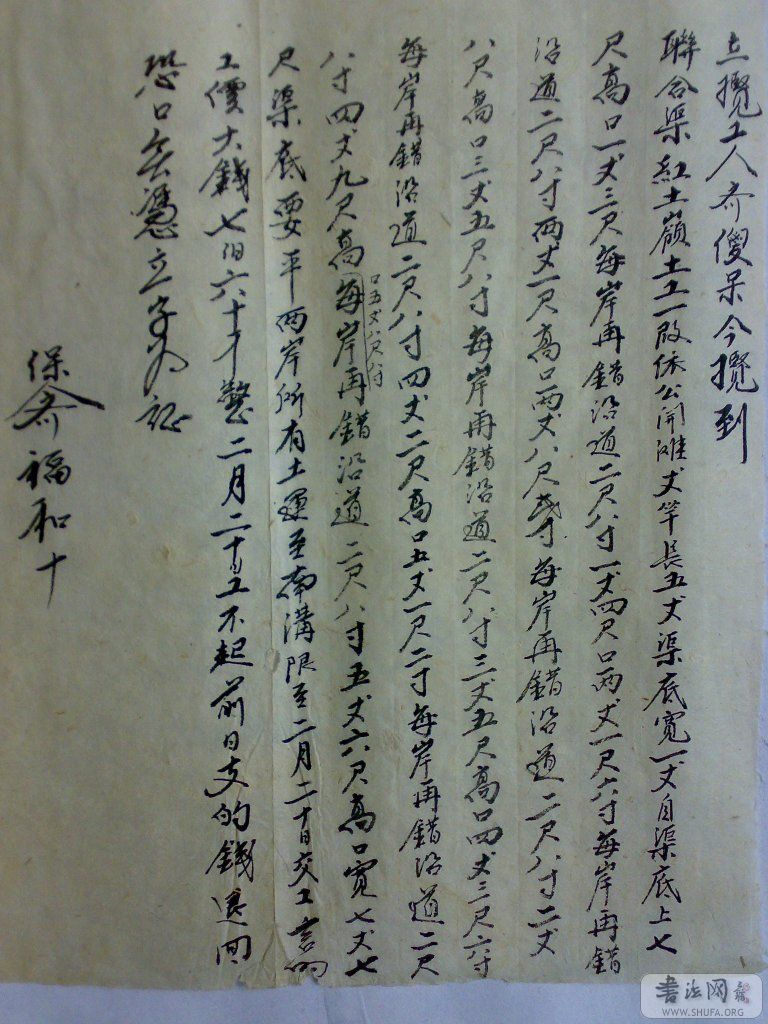 立攬工人齐傻呆今攬到
聯合渠紅土嶺土工一段依公開灘丈竿長五丈渠底寬一丈自渠底上七
尺高口一丈三尺每岸再錯沿道二尺八寸一丈四尺口两丈一尺六寸每岸再錯
沿道二尺八寸两丈一尺高口两丈八尺寸每岸再錯沿道二尺八寸二丈
八尺高口三丈五尺八寸每岸再錯沿道二尺八寸三丈五尺高口四丈三尺六寸
每岸再錯沿道二尺八寸四丈二尺高口五丈一尺二寸每岸再錯沿道二尺
八寸四丈九尺高口五丈八尺八寸每岸再錯沿道二尺八寸五丈六尺高口寬七丈七
尺渠底要平两岸所有土運至南溝限至二月二十日交工言明
工價大錢七百六十千整二月二十工不起前日支的錢退回
恐口無憑立字为証
保齐福和十
書法网
WWW.SHUFA.ORG